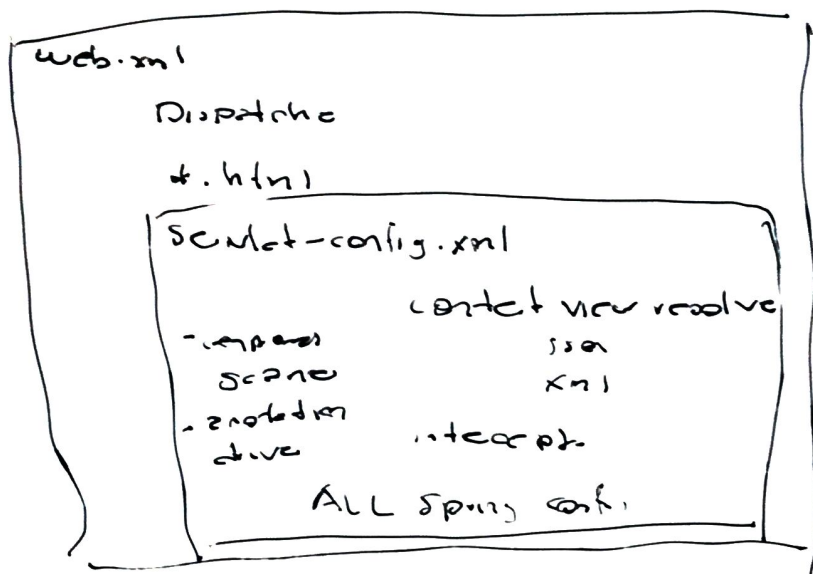 web.xml
Dispatche
*.html
Servlet-config.xml
contet view resolve
- compones json
scane xml
- anotation
drive intercept.
ALL Spring conf.